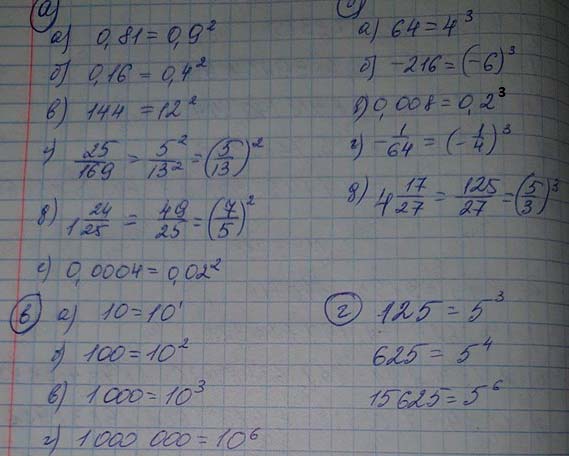 а)
а) 0,81 = 0,9²
б) 0,16 = 0,4²
в) 144 = 12²
г) 25/169 = 5²/13² = (5/13)²
д) 1 24/25 = 49/25 = (7/5)²
е) 0,0004 = 0,02²
б)
а) 64 = 4³
б) -216 = (-6)³
в) 0,008 = 0,2³
г) -1/64 = (-1/4)³
д) 4 17/27 = 125/27 = (5/3)³
в) а) 10 = 10¹
б) 100 = 10²
в) 1000 = 10³
г) 1 000 000 = 10⁶
г) 125 = 5³
625 = 5⁴
15625 = 5⁶